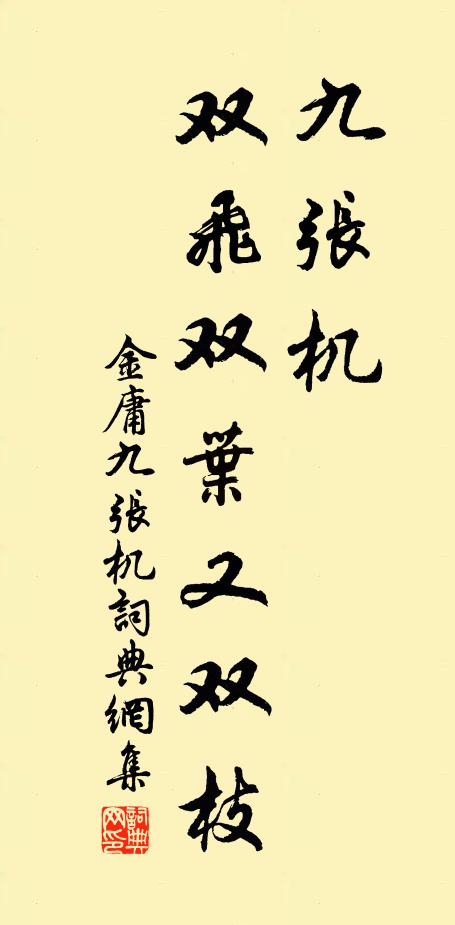 九張机
双飛双葉又双枝
金庸九張机詞典網集
詞典网印